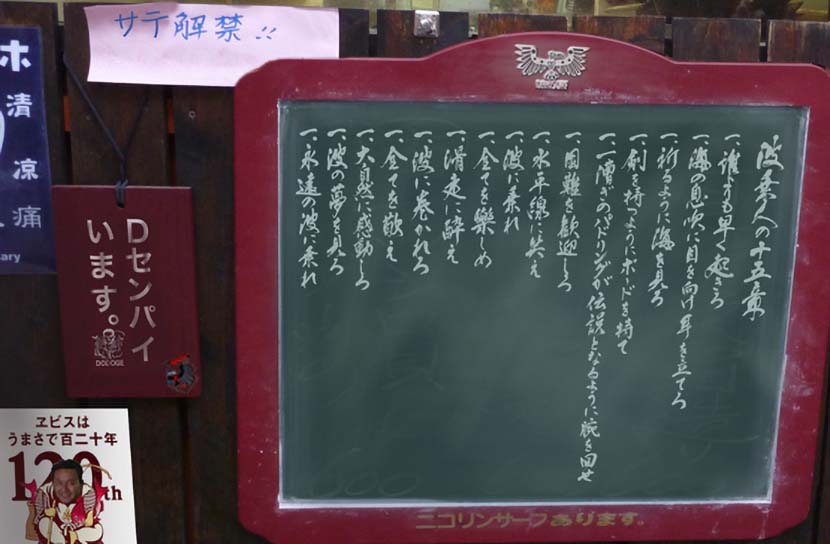 サテ解禁!!
ホ
清涼痛
ary
Dセンパイ
います。
DODOGIE
ヱビスは
うまさで百二十年
120th
波乗人の十五章
一、誰よりも早く起きろ
一、海の息吹に目を向け耳を立てろ
一、祈るように海を見ろ
一、剣を持つようにボードを持て
一、一陣ぎのパドリングが伝説となるように腕を回せ
一、困難を歓迎しろ
一、水平線に笑え
一、波に乗れ
一、全てを楽しめ
一、滑走に酔え
一、波に巻かれろ
一、全てを敬え
一、大自然に感動しろ
一、波の夢を見ろ
一、永遠の波に乗れ
ニコリンサーフあります。